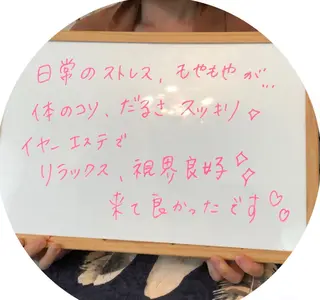 日常のストレス、もやもやが…
体のコリ、だるさスッキリ✧
イヤーエステで
リラックス、視界良好✧✧
来て良かったです♡♡